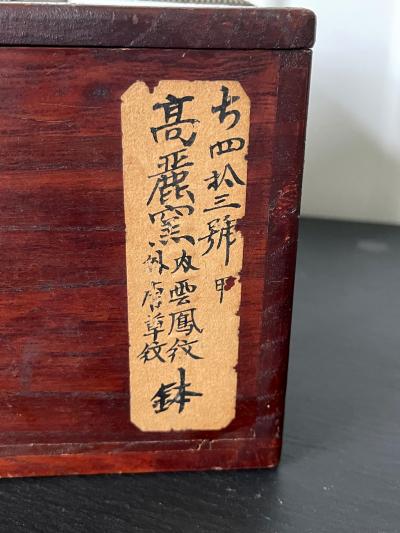 ち四拾三號 甲
髙麗窯
内雲鳳紋
外唐草紋
鉢